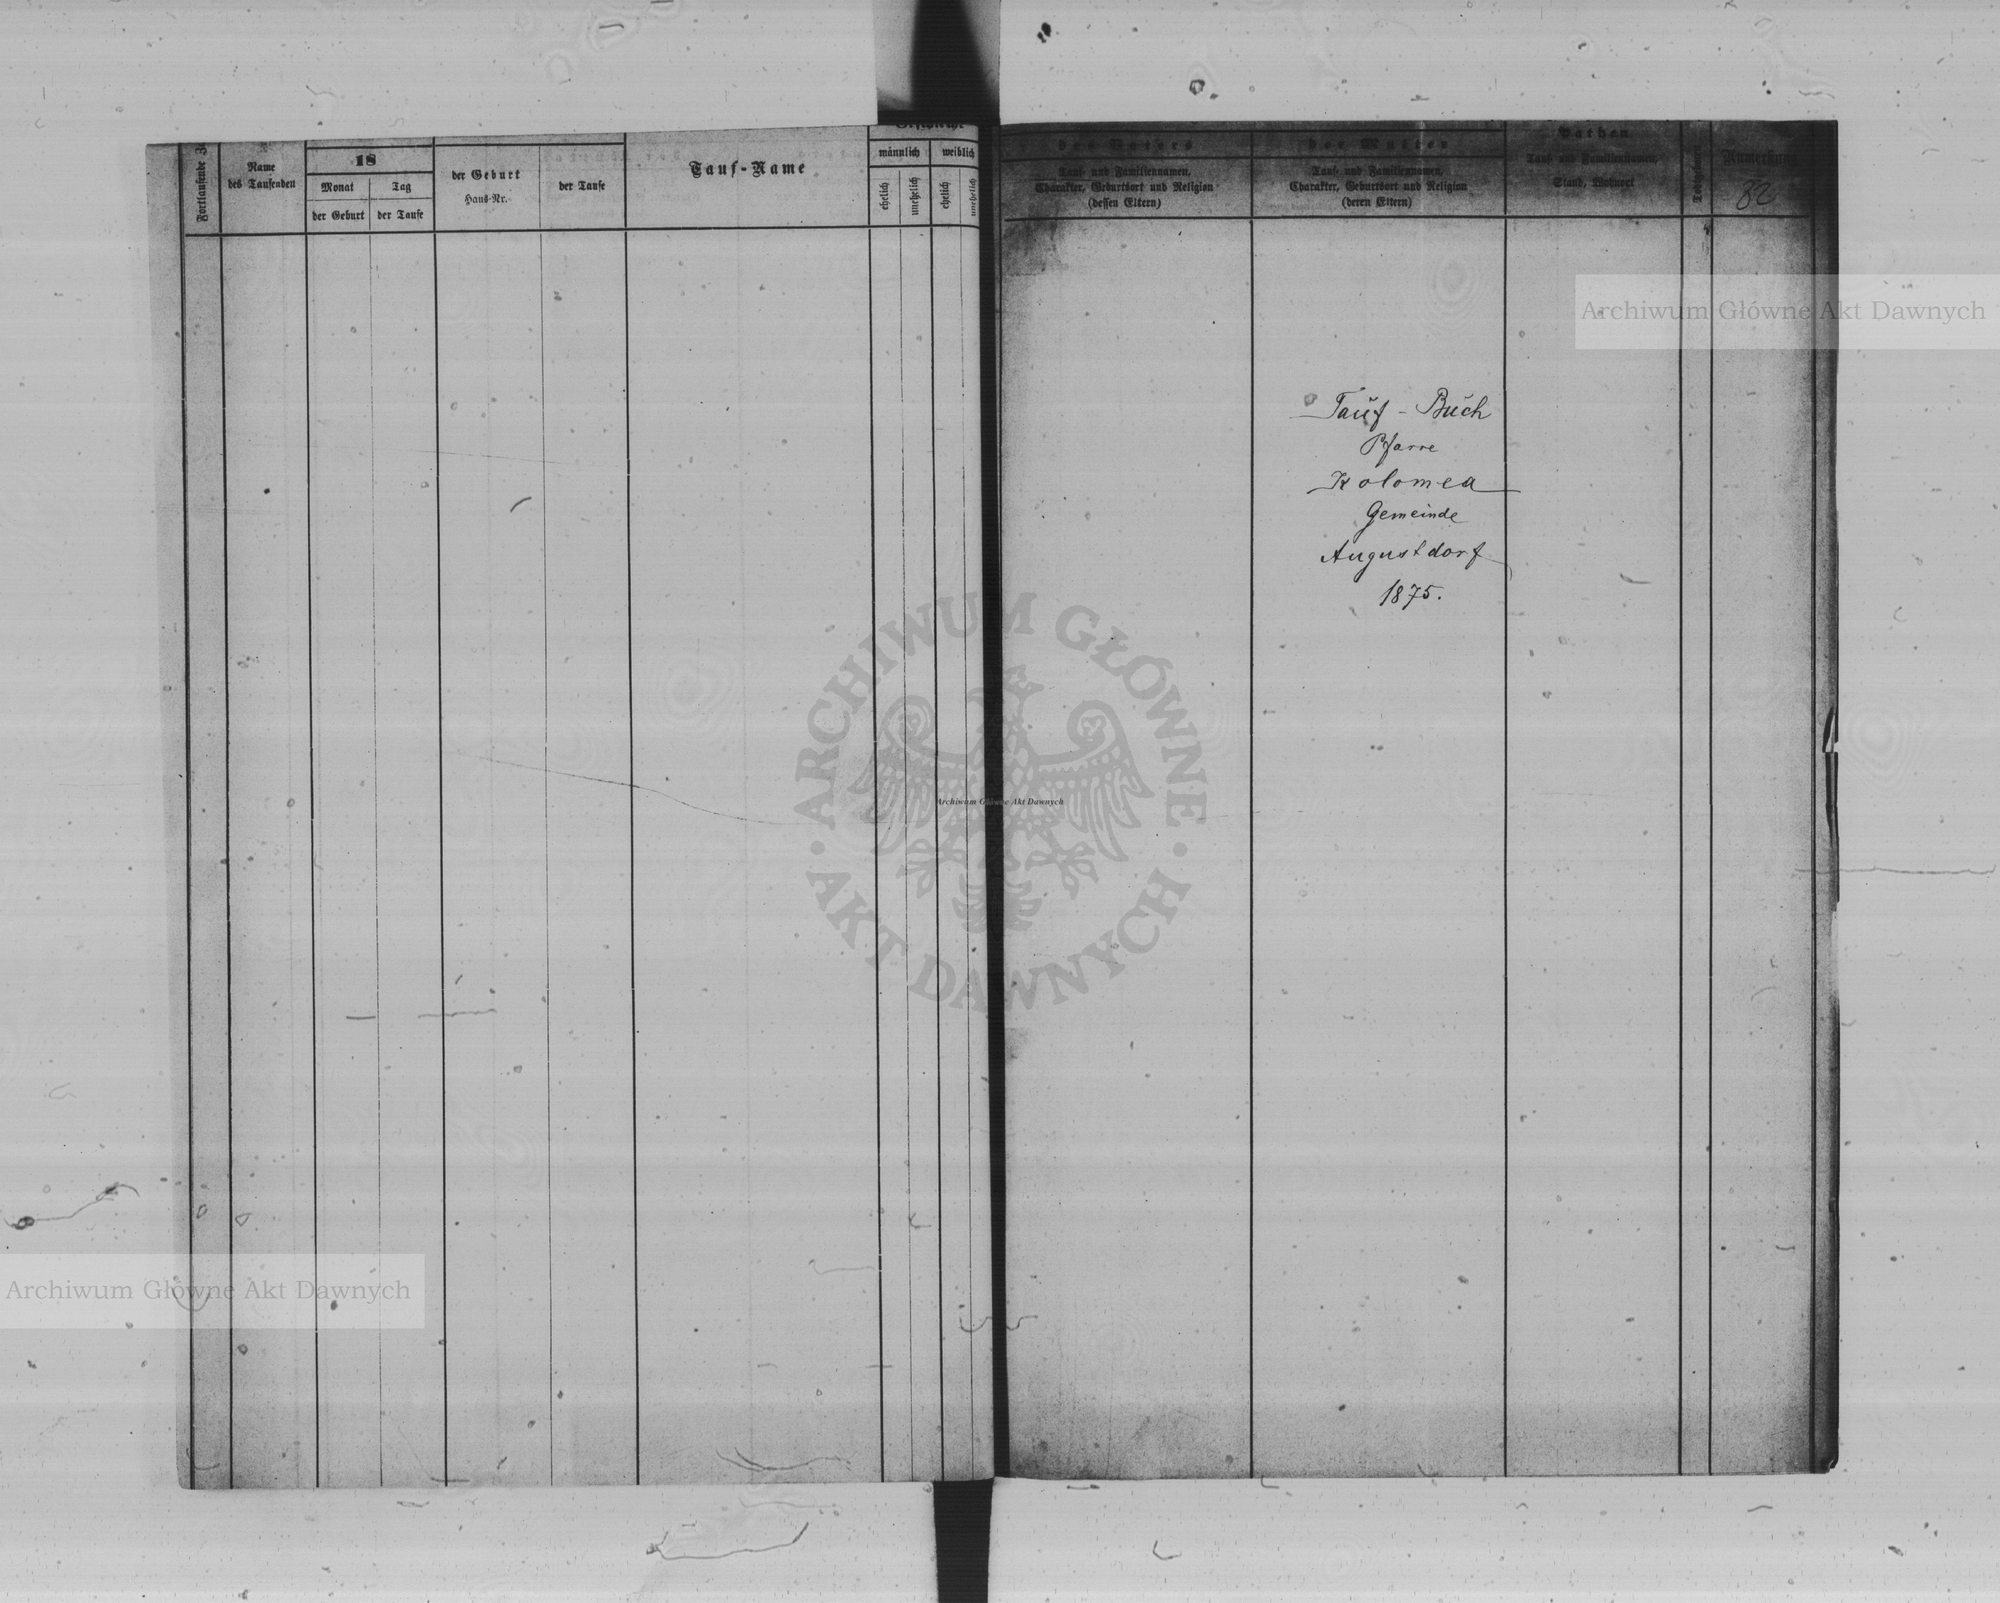 Fortlaufende
Name
des Taufenden
18
Monat
der Geburt
Tag
der Taufe
der Geburt
Haus-Nr.
der Taufe
Tauf-Name
Geschlecht
männlich
weiblich
ehelich
unehelich
ehelich
unehelich
des Vaters
Tauf- und Familiennamen,
Charakter, Geburtsort und Religion
(dessen Eltern)
der Mutter
Tauf- und Familiennamen,
Charakter, Geburtsort und Religion
(deren Eltern)
Pathen
Tauf- und Familiennamen,
Stand, Wohnort
82
Archiwum Główne Akt Dawnych
Tauf - Buch
Pfarre
Kolomea
Gemeinde
Augustdorf
1875.
ARCHIWUM GŁÓWNE
AKT DAWNYCH
Archiwum Główne Akt Dawnych
Archiwum Główne Akt Dawnych